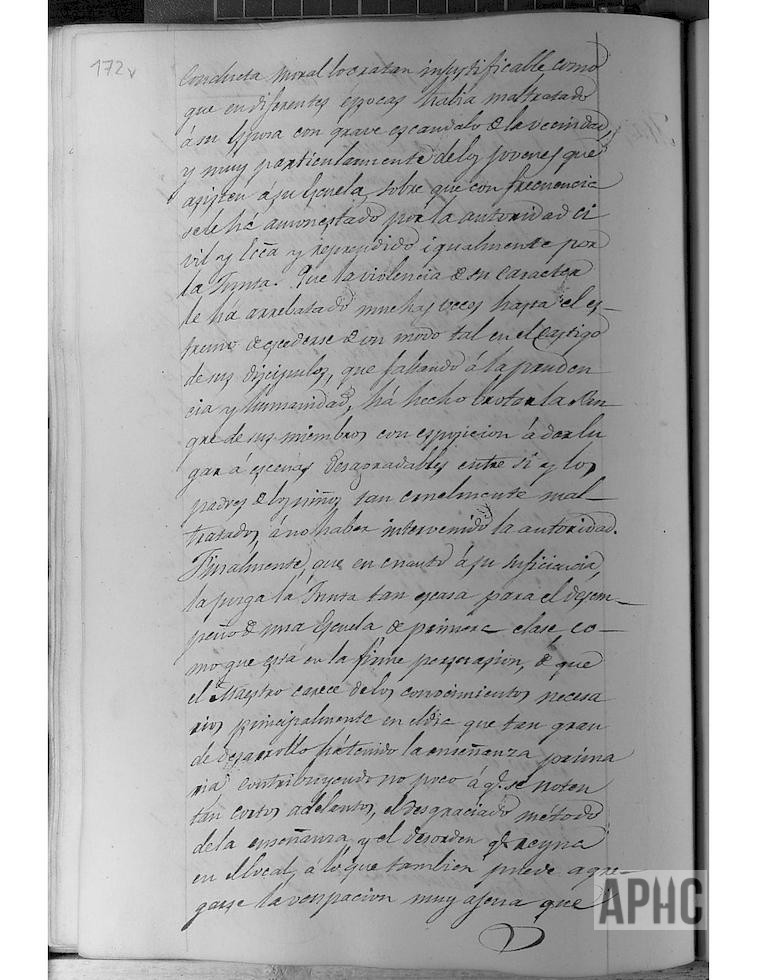 172v
Conducta moral lo cratan injustificable, como
que en diferentes épocas habia maltratado
á su Esposa con grave escandalo de la vecindad,
y muy particularmente de los jovenes que
asisten á su Escuela, sobre que con frecuencia
se le há amonestado por la autoridad ci
vil y Ecca y reprendido igualmente por
la Junta. Que la violencia de su caracter
le há arrebatado muchas veces hasta el es-
tremo de escederse de un modo tal en el castigo
de sus discipulos, que faltando á la pruden
cia y humanidad, há hecho brotar la san
gre de sus miembros con esposicion á dar lu
gar á escenas desagradables entre si y los
padres de los niños tan cruelmente mal-
tratados, á no haber intervenido la autoridad.
Finalmente, que en cuanto á su suficiencia,
la juzga la Junta tan escasa para el desem-
peño de una Escuela de primera clase, co-
mo que está en la firme persuasion, de que
el Maestro carece de los conocimientos necesa
rios principalmente en el dia que tan gran
de desarrollo há tenido la enseñanza prima
ria contribuyendo no poco á q.e se noten
tan cortos adelantos, el desgraciado método
de la enseñanza y el desorden q.e reyna
en el local, á lo que tambien puede agre-
garse la ocupacion muy agena que
APHC